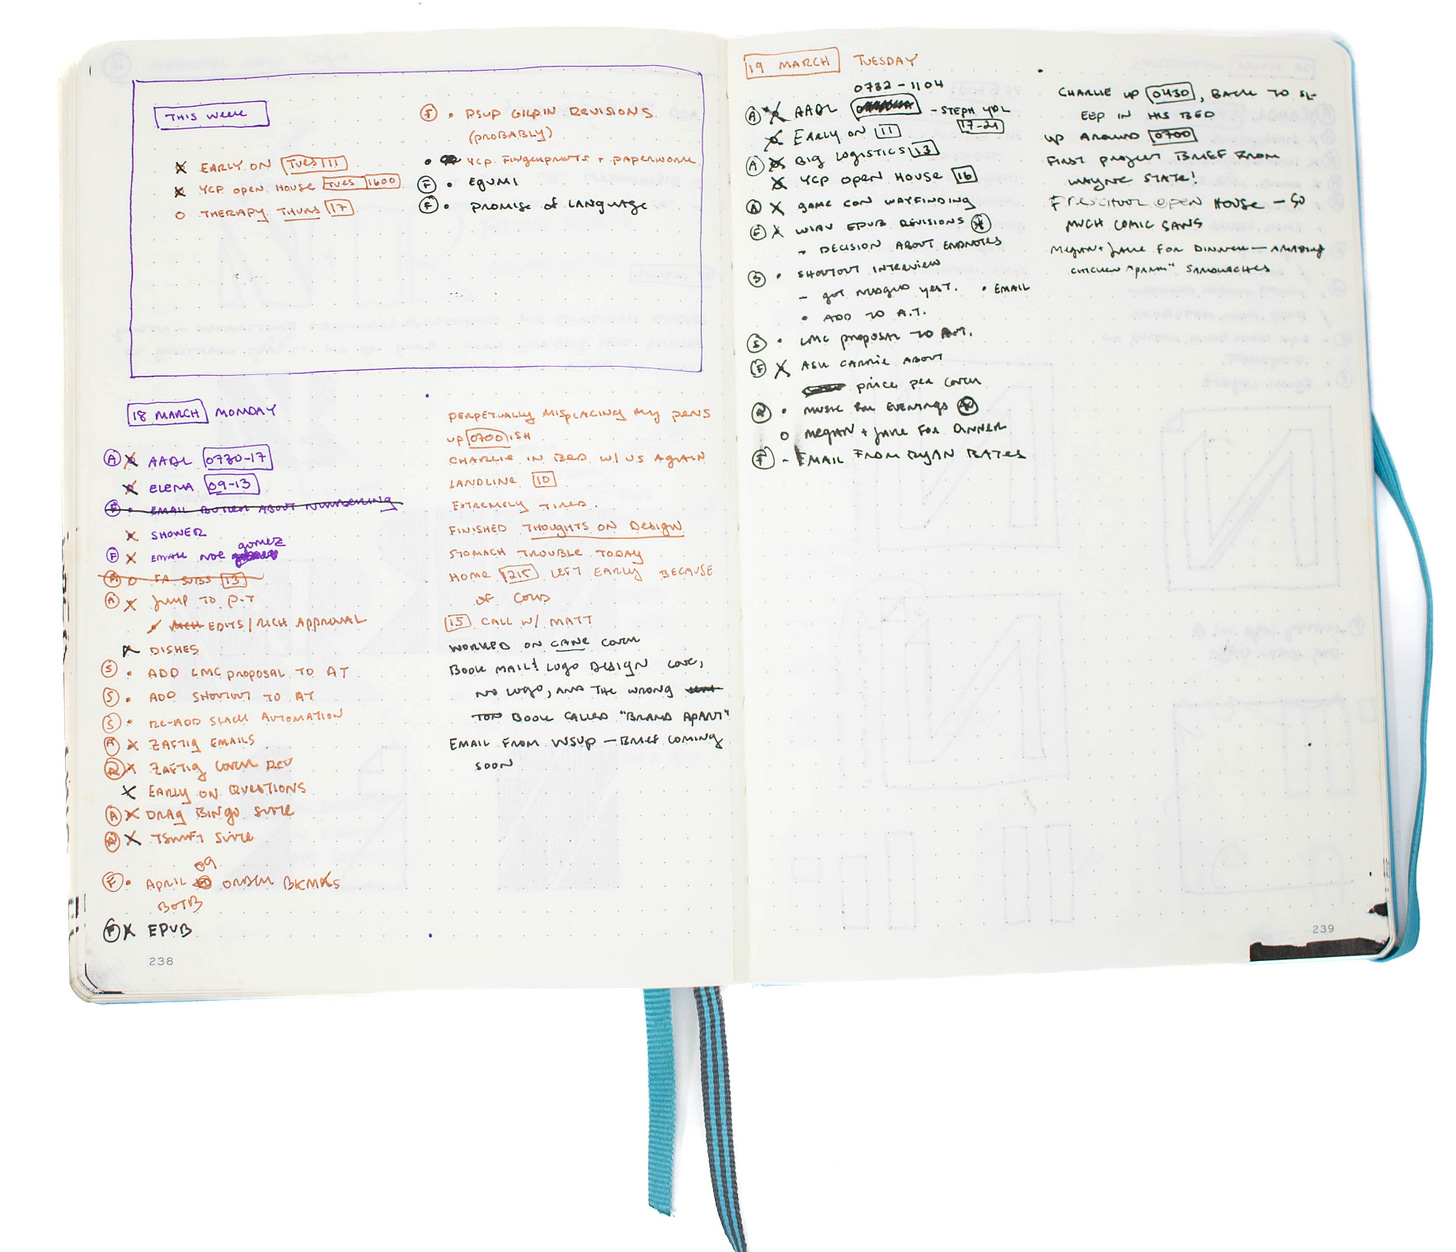 THIS WEEK
X EARLY ON TUES 11
X YCP OPEN HOUSE TUES 1600
O THERAPY THURS 17
F • PSUP GILPIN REVISIONS
(PROBABLY)
• YCP FINGERPRINTS + PAPERWORK
F • EQUMI
F • PROMISE OF LANGUAGE
18 MARCH MONDAY
A X AADL 0730-17
X ELENA 09-13
F • EMAIL ABOUT NUMBERING
X SHOWER
F X EMAIL NOE GOMEZ
A O FA SUBS 13
A X JUMP TO P.T
EDITS/RICH APPROVAL
X DISHES
S • ADD LMC PROPOSAL TO AT
S • ADD SHOUTOUT TO AT
S • RE-ADD SLACK AUTOMATION
A X ZAFTIG EMAILS
A X ZAFTIG COVER REV
X EARLY ON QUESTIONS
A X DRAG BINGO SUITE
A X SUITE
09
F • APRIL ORDER BKMRKS
BOTB
F X EPUB
238
PERPETUALLY MISPLACING MY PENS
UP 0700 ISH
CHARLIE IN BED W/ US AGAIN
LANDLINE 10
EXTREMELY TIRED.
FINISHED THOUGHTS ON DESIGN
STOMACH TROUBLE TODAY
HOME 1215 LEFT EARLY BECAUSE
OF COLD
15 CALL W/ MATT
WORKED ON CANE COVER
BOOK MAIL! LOGO DESIGN LOVE,
NO LOGO, AND THE WRONG
BOOK CALLED "BRAND APART"
EMAIL FROM WSUP — BRIEF COMING
SOON
19 MARCH TUESDAY
0732-1104
A X AADL - STEPH YDL
17-21
X EARLY ON 11
A X BIG LOGISTICS 13
X YCP OPEN HOUSE 16
A X GAME CON WAYFINDING
F X WIAV EPUB REVISIONS
- DECISION ABOUT ENDNOTES
S • SHOUTOUT INTERVIEW
- GOT NUDGED YEST. • EMAIL
• ADD TO A.T.
S • LMC PROPOSAL TO A.T.
F X ASK CARRIE ABOUT
PRICE PER COVER
A • MUSIC FOR EVENINGS
O MEGAN + JANE FOR DINNER
F - EMAIL FROM RYAN BATES
CHARLIE UP 0430, BACK TO SL-
EEP IN HIS BED
UP AROUND 0700
FIRST PROJECT BRIEF FROM
WAYNE STATE!
PRESCHOOL OPEN HOUSE — SO
MUCH COMIC SANS
MEGAN + JANE FOR DINNER — AMAZING
CHICKEN "PARM" SANDWICHES
239